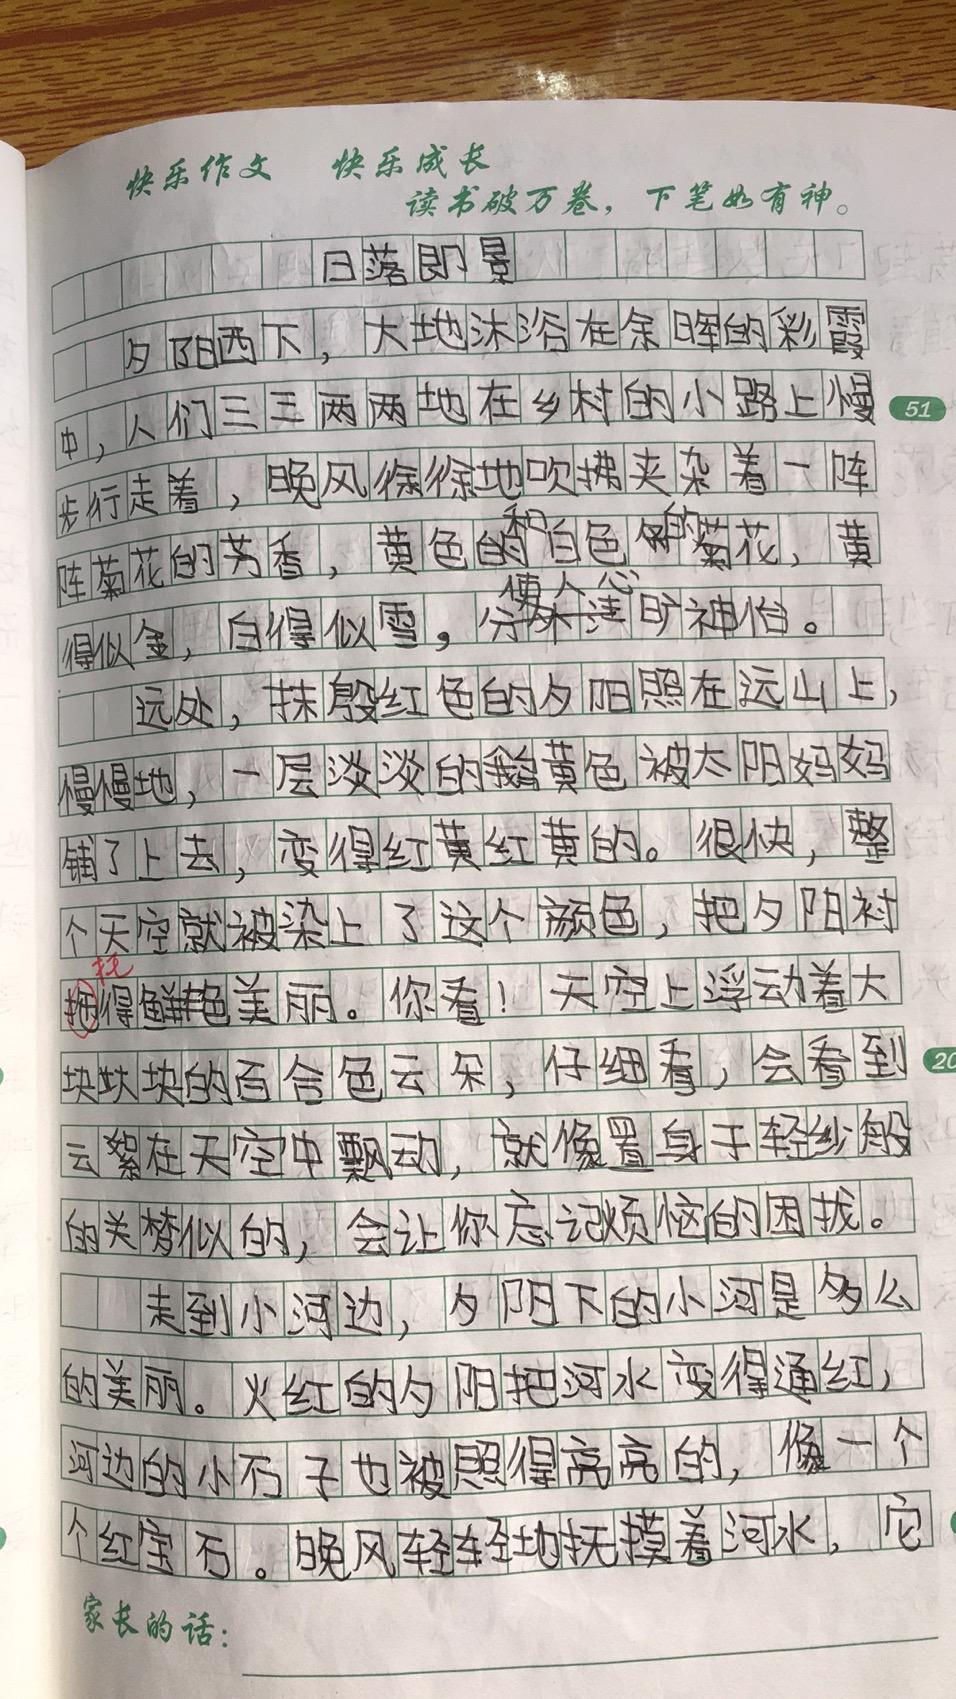 快乐作文 快乐成长
读书破万卷，下笔如有神。
日落即景
夕阳西下，大地沐浴在余晖的彩霞
51
中，人们三三两两地在乡村的小路上慢
步行走着，晚风徐徐地吹拂夹杂着一阵
阵菊花的芳香，黄色的和白色的菊花，黄
得似金，白得似雪，使人心旷神怡。
远处，抹殷红色的夕阳照在远山上，
慢慢地，一层淡淡的鹅黄色被太阳妈妈
铺了上去，变得红黄红黄的。很快，整
个天空就被染上了这个颜色，把夕阳衬
托
得鲜艳美丽。你看！天空上浮动着大
块块块的百合色云朵，仔细看，会看到
20
云絮在天空中飘动，就像置身于轻纱般
的美梦似的，会让你忘记烦恼的困扰。
走到小河边，夕阳下的小河是多么
的美丽。火红的夕阳把河水变得通红，
河边的小石子也被照得亮亮的，像一个
个红宝石。晚风轻轻地抚摸着河水，它
家长的话：